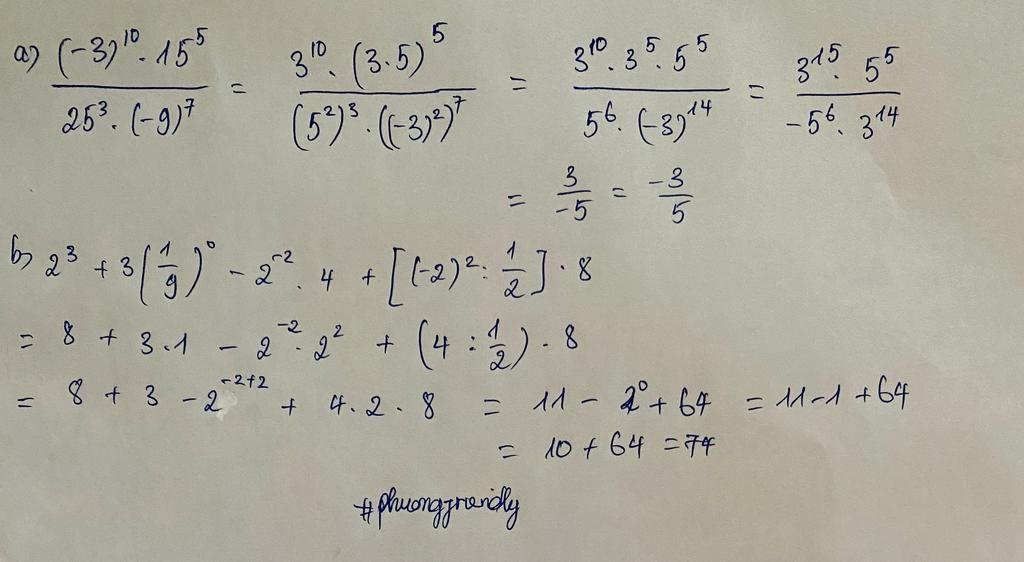 a) \frac{(-3)^{10} . 15^5}{25^3 . (-9)^7} = \frac{3^{10} . (3.5)^5}{(5^2)^3 . ((-3)^2)^7} = \frac{3^{10} . 3^5 . 5^5}{5^6 . (-3)^{14}} = \frac{3^{15} . 5^5}{-5^6 . 3^{14}}
= \frac{3}{-5} = \frac{-3}{5}
b) 2^3 + 3(\frac{1}{9})^0 - 2^{-2} . 4 + [(-2)^2 : \frac{1}{2}] . 8
= 8 + 3.1 - 2^{-2} . 2^2 + (4 : \frac{1}{2}) . 8
= 8 + 3 - 2^{-2+2} + 4.2.8 = 11 - 2^0 + 64 = 11 - 1 + 64
= 10 + 64 = 74
#phuongfriendly